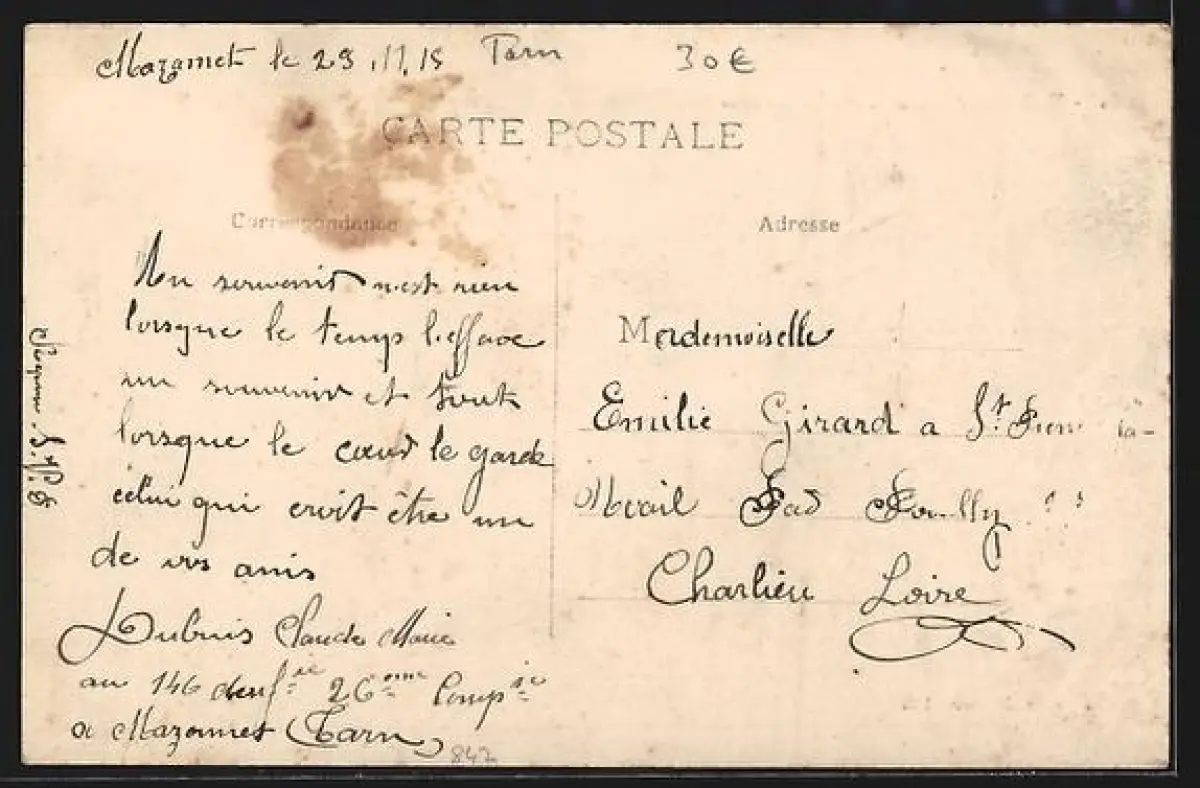 Mazamet le 23.11.15 Tarn
30€
CARTE POSTALE
Correspondance
Adresse
Un souvenir n'est rien
lorsque le temps l'efface
un souvenir et tout
lorsque le cœur le garde
celui qui croit être un
de vos amis
Dubuis Claude Marie
au 146 d'inf.ie 26ème Comp.ie
a Mazamet (Tarn)
842
Mademoiselle
Emilie Girard a St. la-
Noail Par Pouilly
Charlieu Loire